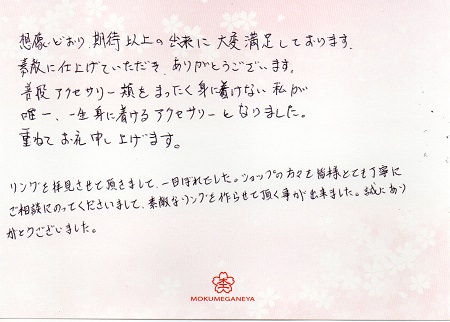 想像どおり期待以上の出来に大変満足しております。
素敵に仕上げていただき、ありがとうございます。
普段アクセサリー類をまったく身に着けない私が
唯一、一生身に着けるアクセサリーとなりました。
重ねてお礼申し上げます。
リングを拝見させて頂きまして、一目ぼれでした。ショップの方々も皆様とても丁寧に
ご相談にのってくださいまして、素敵なリングを作らせて頂く事が出来ました。誠にあり
がとうございました。
MOKUMEGANEYA